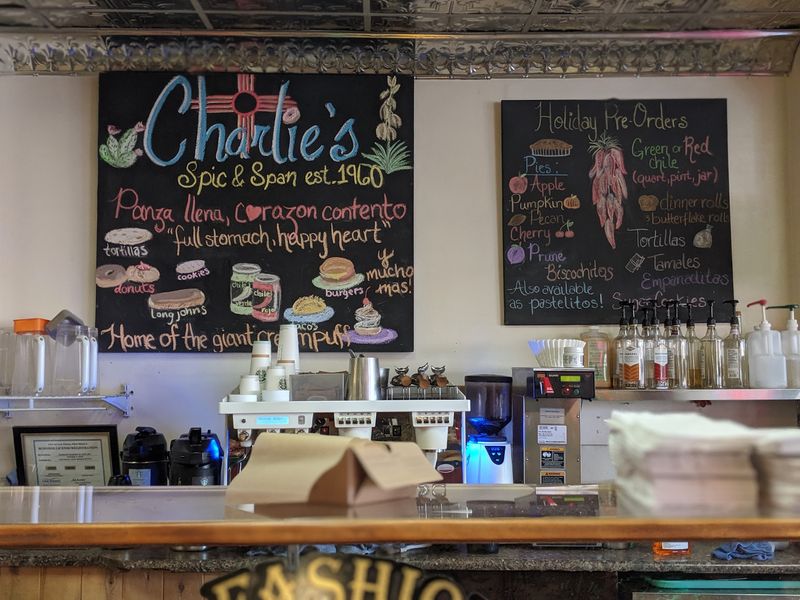 Charlie's
Spic & Span est. 1960
Panza llena, corazon contento
"full stomach, happy heart"
y mucho mas!
tortillas
donuts
cookies
Long johns
chile
chile rojo
burgers
tacos
Home of the giant
Holiday Pre-Orders
Pies:
Apple
Pumpkin
Pecan
Cherry
Prune
Biscochitos
Also available
as pastelitos!
Green or Red
chile
(quart, pint, jar)
dinner rolls
& butterflake rolls
Tortillas
Tamales
Empanaditas
Cookies
FASHIO